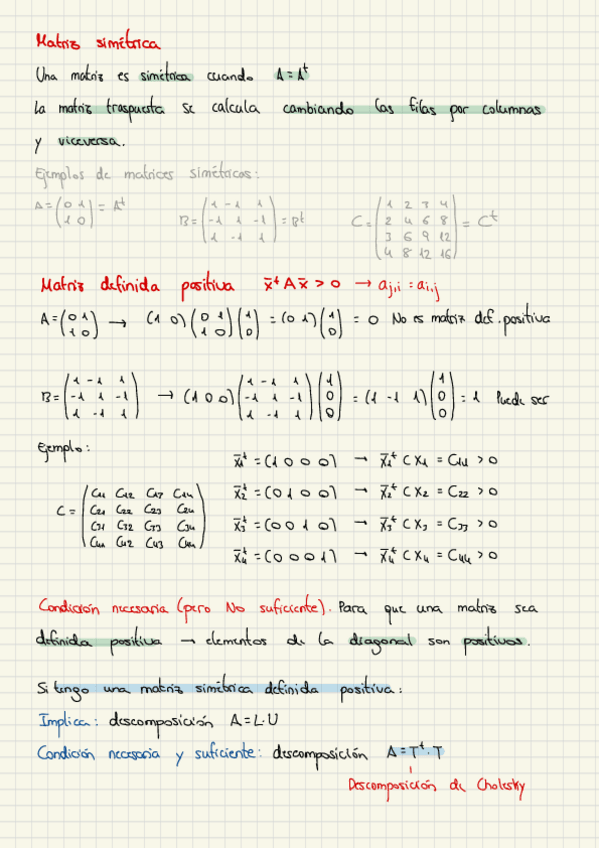 Matriz simétrica
Una matriz es simétrica cuando A = Aᵗ
La matriz traspuesta se calcula cambiando las filas por columnas
y viceversa.
Ejemplos de matrices simétricas:
A = (0 1; 1 0) = Aᵗ B = (1 -1 1; -1 1 -1; 1 -1 1) = Bᵗ C = (1 2 3 4; 2 4 6 8; 3 6 9 12; 4 8 12 16) = Cᵗ
Matriz definida positiva x̄ᵗ A x̄ > 0 → aj,i = ai,j
A = (0 1; 1 0) → (1 0) (0 1; 1 0) (1; 0) = (0 1) (1; 0) = 0 No es matriz def. positiva
B = (1 -1 1; -1 1 -1; 1 -1 1) → (1 0 0) (1 -1 1; -1 1 -1; 1 -1 1) (1; 0; 0) = (1 -1 1) (1; 0; 0) = 1 Puede ser
Ejemplo:
C = (C11 C12 C13 C14; C21 C22 C23 C24; C31 C32 C33 C34; C41 C42 C43 C44)
x̄1ᵗ = (1 0 0 0) → x̄1ᵗ C x1 = C11 > 0
x̄2ᵗ = (0 1 0 0) → x̄2ᵗ C x2 = C22 > 0
x̄3ᵗ = (0 0 1 0) → x̄3ᵗ C x3 = C33 > 0
x̄4ᵗ = (0 0 0 1) → x̄4ᵗ C x4 = C44 > 0
Condición necesaria (pero No suficiente). Para que una matriz sea
definida positiva → elementos de la diagonal son positivos.
Si tengo una matriz simétrica definida positiva:
Implica: descomposición A = L·U
Condición necesaria y suficiente: descomposición A = Tᵗ · T
Descomposición de Cholesky